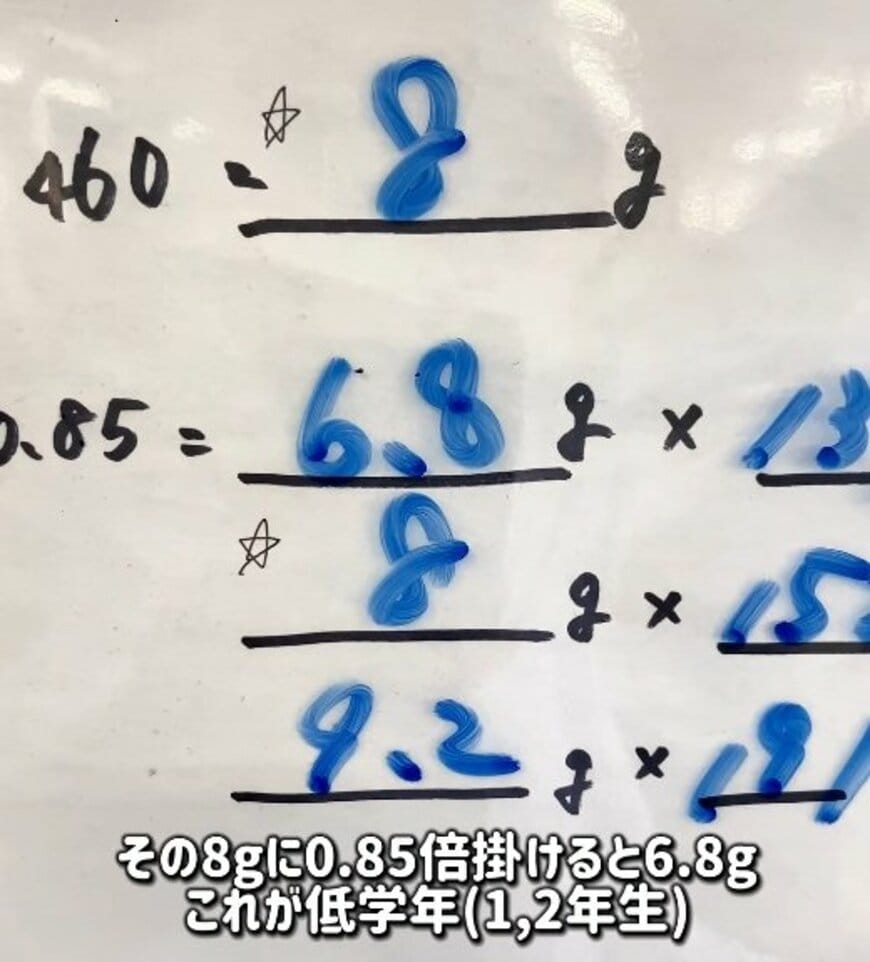 460 = ☆ 8 g
0.85 = 6.8 g ×
☆ 8 g ×
9.2 g × 191
その8gに0.85倍掛けると6.8g
これが低学年(1,2年生)